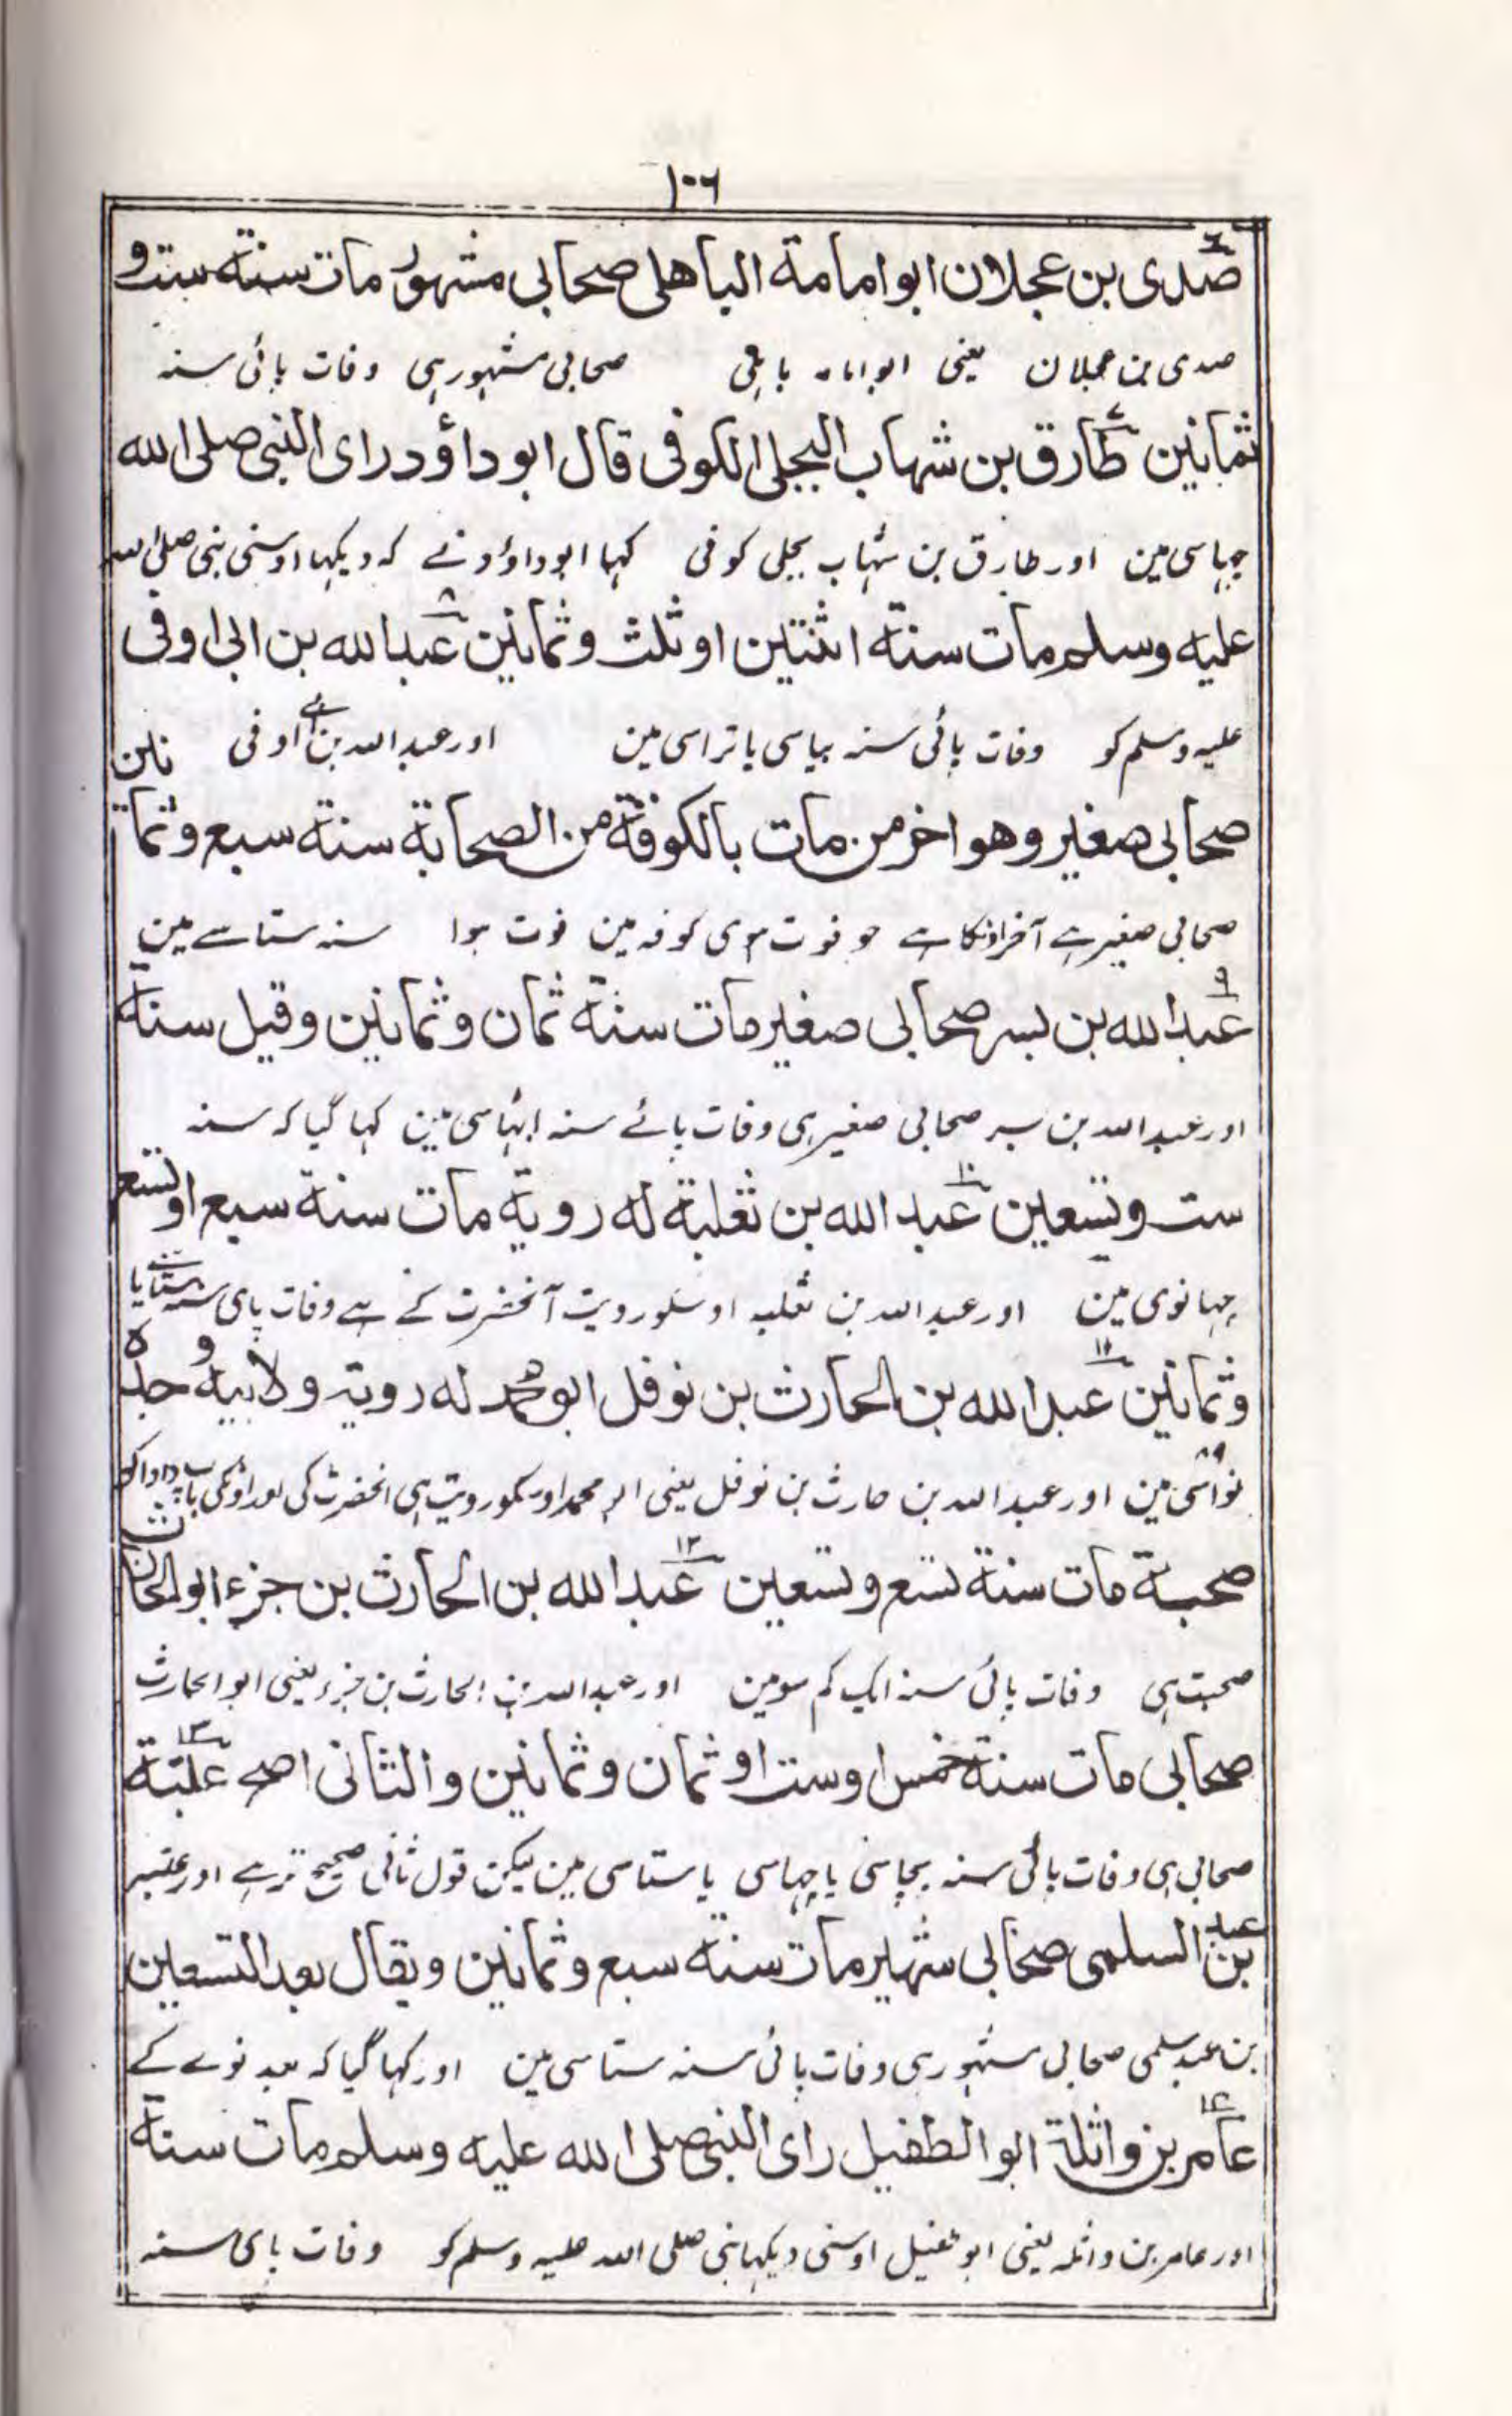 ۱۰۶
۶
صدی بن عجلان ابو امامة الباهلی صحابی مشهور مات سنة ست و
صدی بن عجلان یعنی ابو امامہ باہلی صحابی مشہور ہی وفات پائی سنہ
ثمانین ۷ طارق بن شهاب البجلی الکوفی قال ابو داؤد رای النبی صلی الله
چہیاسی مین اور طارق بن شہاب بجلی کوفی کہا ابو داؤد نے کہ دیکہا اوسنی نبی صلی اللہ
علیه وسلم مات سنة اثنتین او ثلث وثمانین ۸ عبد الله بن ابی اوفی
علیہ وسلم کو وفات پائی سنہ بیاسی یا تراسی مین اور عبد اللہ بن ابی اوفی
صحابی صغیر وهو اخر من مات بالکوفة من الصحابة سنة سبع وثمانین
صحابی صغیر ہے آخر اونکا ہے جو فوت ہوی کوفہ مین فوت ہوا سنہ ستاسے مین
۹ عبد الله بن بسر صحابی صغیر مات سنة ثمان وثمانین وقیل سنة
اور عبد اللہ بن بسر صحابی صغیر ہی وفات پائے سنہ اٹہاسی مین کہا گیا کہ سنہ
ست وتسعین ۱۰ عبد الله بن ثعلبة له رویة مات سنة سبع او تسع
چہیانوی مین اور عبد اللہ بن ثعلبہ اوسکو رویت آنحضرت کے ہے وفات پای سنہ ستاسے یا
وثمانین ۱۱ عبد الله بن الحارث بن نوفل ابو محمد له رویة ولابیه و جده
نواسی ۸۹ مین اور عبد اللہ بن حارث بن نوفل یعنی ابو محمد اوسکو رویت ہی انحضرت کی اور اونکی باپ دادا کو
صحبة مات سنة تسع وتسعین ۱۲ عبد الله بن الحارث بن جزء ابو الحارث
صحبت ہی وفات پائی سنہ ایک کم سو مین اور عبد اللہ بن الحارث بن جزء یعنی ابو الحارث
صحابی مات سنة خمس او ست او ثمان وثمانین والثانی اصح ۱۳ عتبة
صحابی ہی وفات پائی سنہ پچاسی یا چہیاسی یا ستاسی مین لیکن قول ثانی صحیح تر ہے اور عتبہ
بن عبد السلمی صحابی شهیر مات سنة سبع وثمانین ویقال بعد التسعین
بن عبد سلمی صحابی مشہور ہی وفات پائی سنہ ستاسی مین اور کہا گیا کہ بعد نوے کے
۱۴ عامر بن واثلة ابو الطفیل رای النبی صلی الله علیه وسلم مات سنة
اور عامر بن واثلہ یعنی ابو طفیل اوسنی دیکہا نبی صلی اللہ علیہ وسلم کو وفات پای سنہ